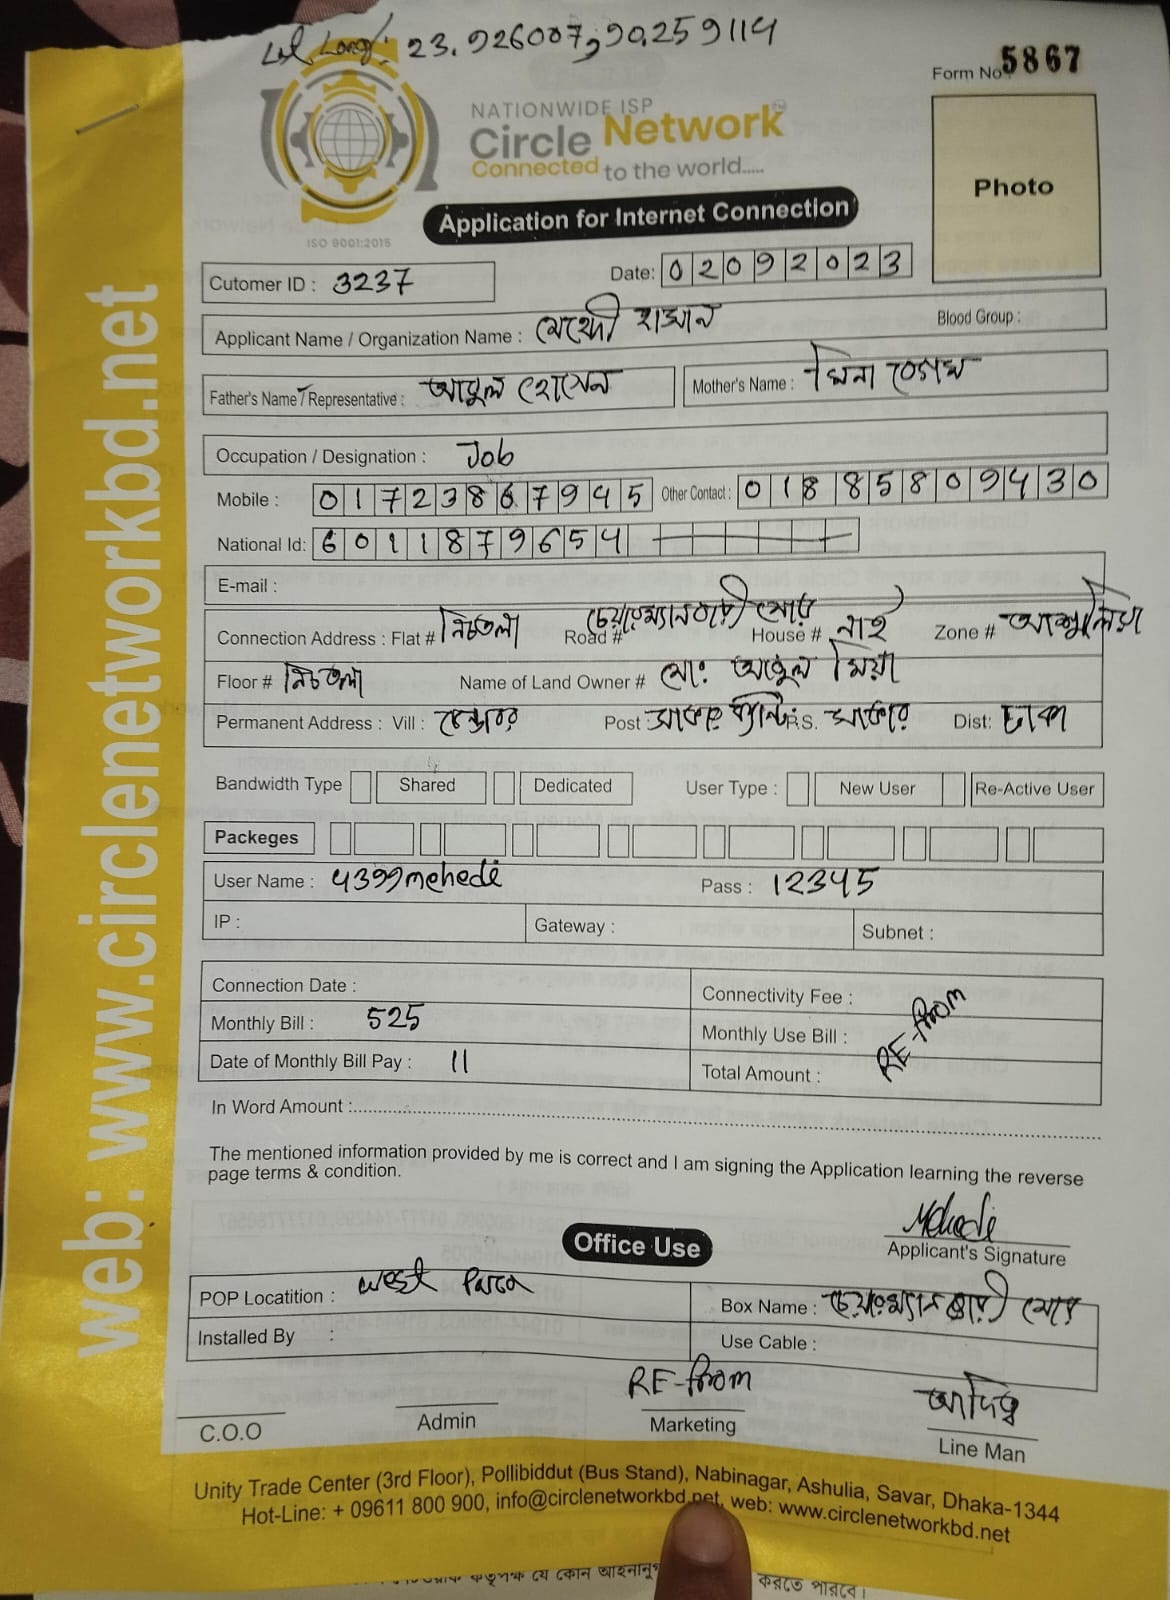 Lat Long: 23.926007,90.259114
Form No 5867
NATIONWIDE ISP
Circle Network
Connected to the world.....
Photo
ISO 9001:2015
Application for Internet Connection
Cutomer ID : 3237 Date: 02092023
Applicant Name / Organization Name : মেহেদী হাসান Blood Group :
Father's Name / Representative : আবুল হোসেন Mother's Name : মিনা বেগম
Occupation / Designation : Job
Mobile : 01723867945 Other Contact : 01885809430
National Id: 6011879654
E-mail :
Connection Address : Flat # নিচতলা Road # চেয়ারম্যানবাড়ী মোড় House # নাই Zone # আশুলিয়া
Floor # নিচতলা Name of Land Owner # মো: আবুল মিয়া
Permanent Address : Vill : Post সাভার ক্যান্ট: P.S. সাভার Dist: ঢাকা
Bandwidth Type Shared Dedicated User Type : New User Re-Active User
Packeges
User Name : 4399mehedi Pass : 12345
IP : Gateway : Subnet :
Connection Date : Connectivity Fee :
Monthly Bill : 525 Monthly Use Bill :
Date of Monthly Bill Pay : 11 Total Amount :
RE-from
In Word Amount :
The mentioned information provided by me is correct and I am signing the Application learning the reverse
page terms & condition.
Mehedi
Applicant's Signature
Office Use
POP Locatition : west Para Box Name : চেয়ারম্যান বাড়ী মোড়
Installed By : Use Cable :
RE-from
C.O.O Admin Marketing Line Man
Unity Trade Center (3rd Floor), Pollibiddut (Bus Stand), Nabinagar, Ashulia, Savar, Dhaka-1344
Hot-Line: + 09611 800 900, info@circlenetworkbd.net, web: www.circlenetworkbd.net
কর্তৃপক্ষ যে কোন আইনানুগ করতে পারবে।
web: www.circlenetworkbd.net